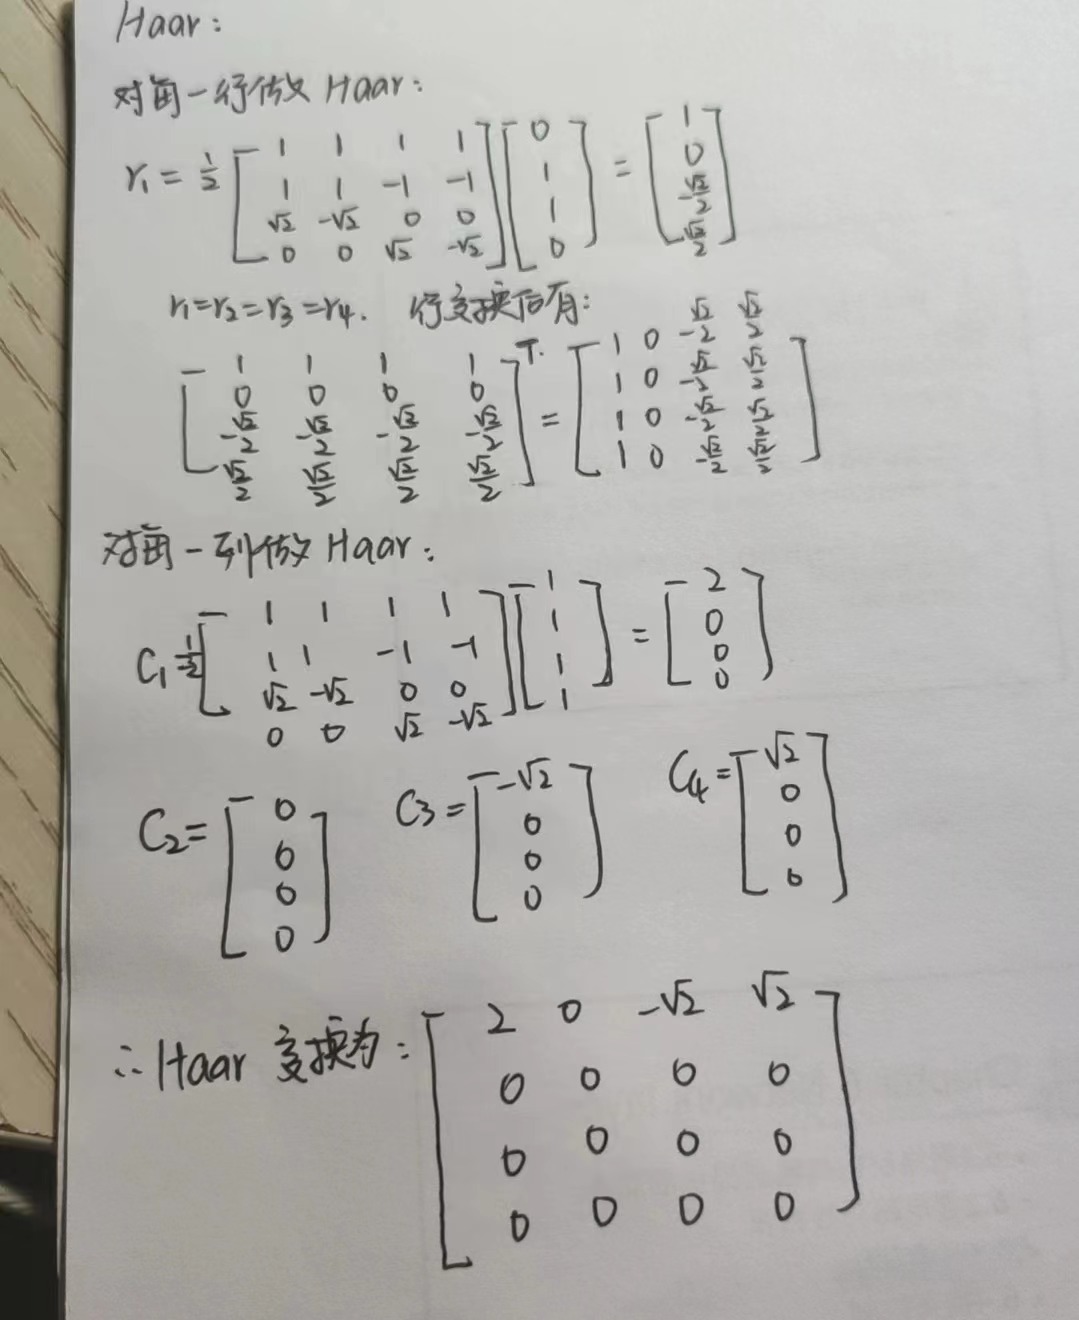 Haar:
对每一行做 Haar:
r₁ = 1/2 [1 1 1 1; 1 1 -1 -1; √2 -√2 0 0; 0 0 √2 -√2] [0; 1; 1; 0] = [1; 0; -√2/2; √2/2]
r₁=r₂=r₃=r₄. 行变换后有:
[1 1 1 1; 0 0 0 0; -√2/2 -√2/2 -√2/2 -√2/2; √2/2 √2/2 √2/2 √2/2]ᵀ = [1 0 -√2/2 √2/2; 1 0 -√2/2 √2/2; 1 0 -√2/2 √2/2; 1 0 -√2/2 √2/2]
对每一列做 Haar:
C₁ = 1/2 [1 1 1 1; 1 1 -1 -1; √2 -√2 0 0; 0 0 √2 -√2] [1; 1; 1; 1] = [2; 0; 0; 0]
C₂ = [0; 0; 0; 0] C₃ = [-√2; 0; 0; 0] C₄ = [√2; 0; 0; 0]
∴ Haar 变换为: [2 0 -√2 √2; 0 0 0 0; 0 0 0 0; 0 0 0 0]